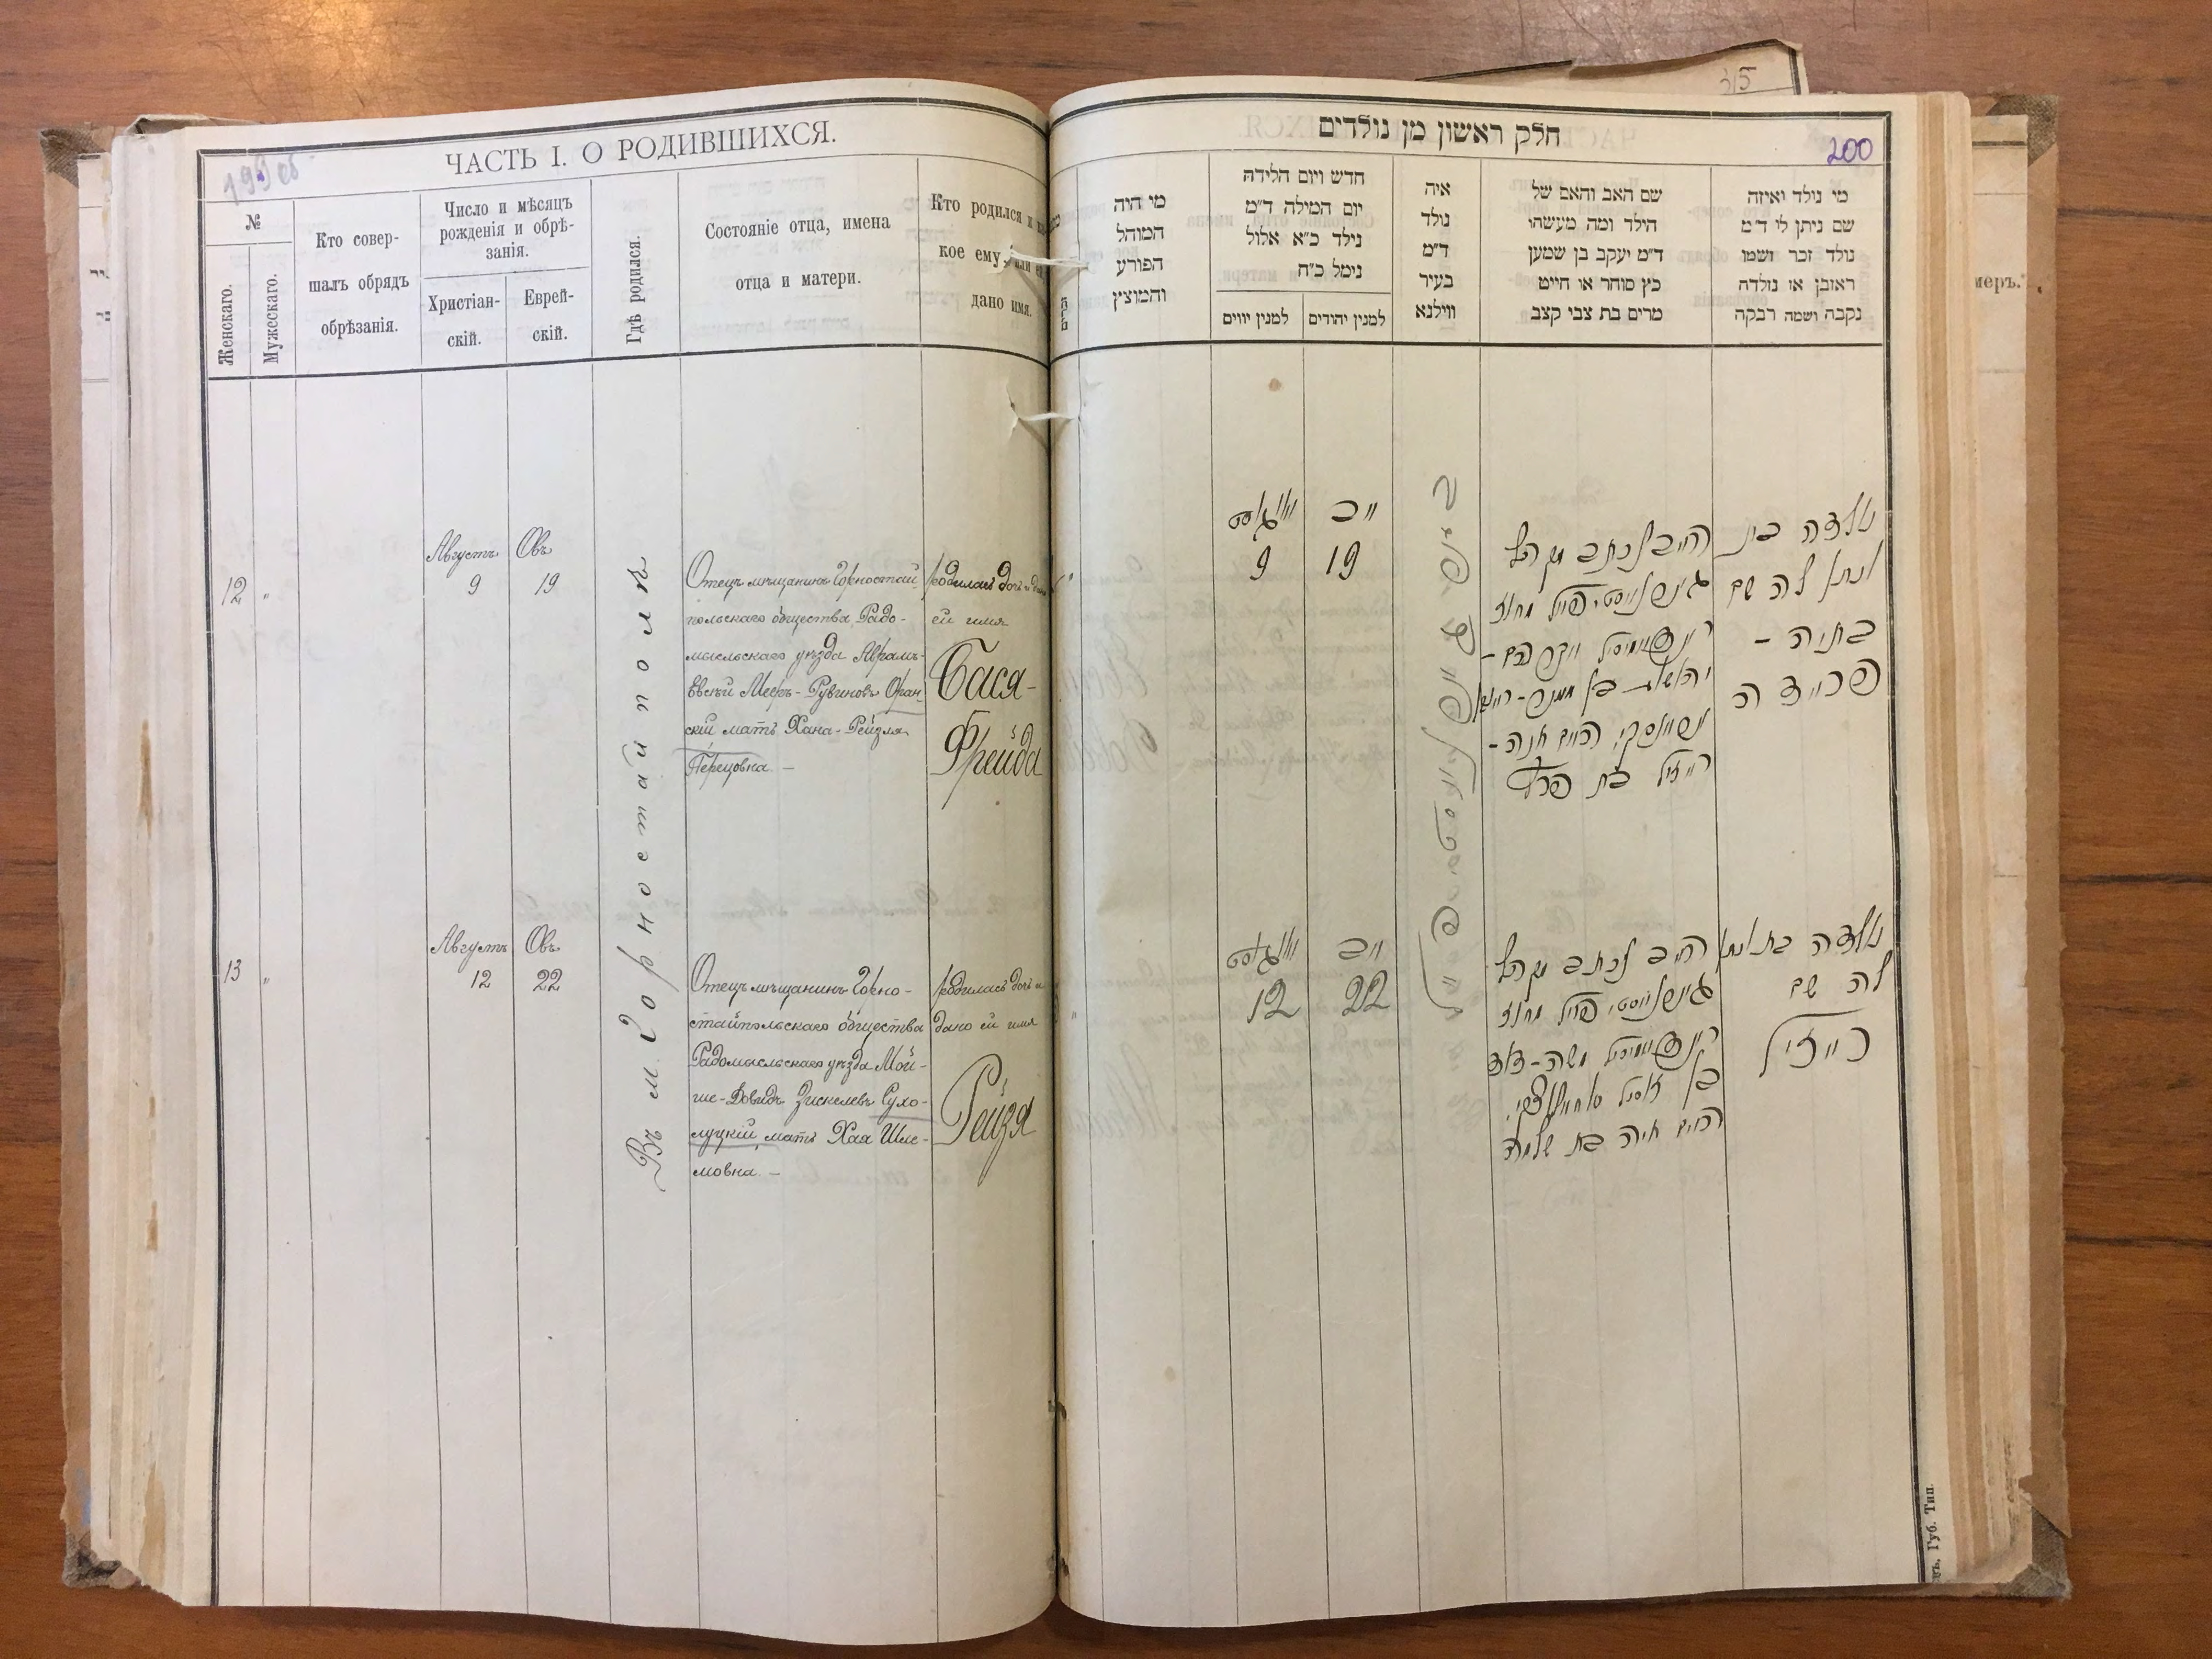 ЧАСТЬ I. О РОДИВШИХСЯ.
№
Женскаго.
Мужескаго.
Кто совер-
шалъ обрядъ
обрѣзанія.
Число и мѣсяцъ
рожденія и обрѣ-
занія.
Христіан-
скій.
Еврей-
скій.
Гдѣ родился.
Состояніе отца, имена
отца и матери.
Кто родился и
кое ему, или
дано имя.
12
"
Августъ
9
Овъ
19
Въ м Горностайполѣ
Отецъ мѣщанинъ Горностай-
польскаго общества Радо-
мысльскаго уѣзда Аврамъ-
Евсѣй Мееръ-Рувиновъ Оран-
скій мать Хана-Рейзля
Перецовна. —
родилась дочь и дано
ей имя
Бася-
Фрейда
13
"
Августъ
12
Овъ
22
Отецъ мѣщанинъ Горно-
стайпольскаго общества
Радомысльскаго уѣзда Мой-
ше-Довидъ Зискелевъ Сухо-
луцкій, мать Хая Шле-
мовна. —
родилась дочь и
дано ей имя
Рейзя
חלק ראשון מן נולדים
200
35
מי נולד ואיזה
שם ניתן לו ד״מ
נולד זכר ושמו
ראובן או נולדה
נקבה ושמה רבקה
שם האב והאם של
הילד ומה מעשהו
ד״מ יעקב בן שמעון
כץ סוחר או חייט
מרים בת צבי קצב
איה
נולד
ד״מ
בעיר
ווילנא
חדש ויום הלידה
יום המילה ד״מ
נילד כ״א אלול
נימל כ״ח
למנין יהודים
למנין יווים
מי היה
המוהל
הפורע
והמוצץ
נולדה בת
ונתן לה שם
בתיה -
פריידה
אב
19
אויגוסט
9
רייזיל בת פרץ
נולדה בת ונתן
לה שם
רייזיל
אב
22
אויגוסט
12
משה-דוד
חיה בת שלמה
меръ."
Губ. Тип.